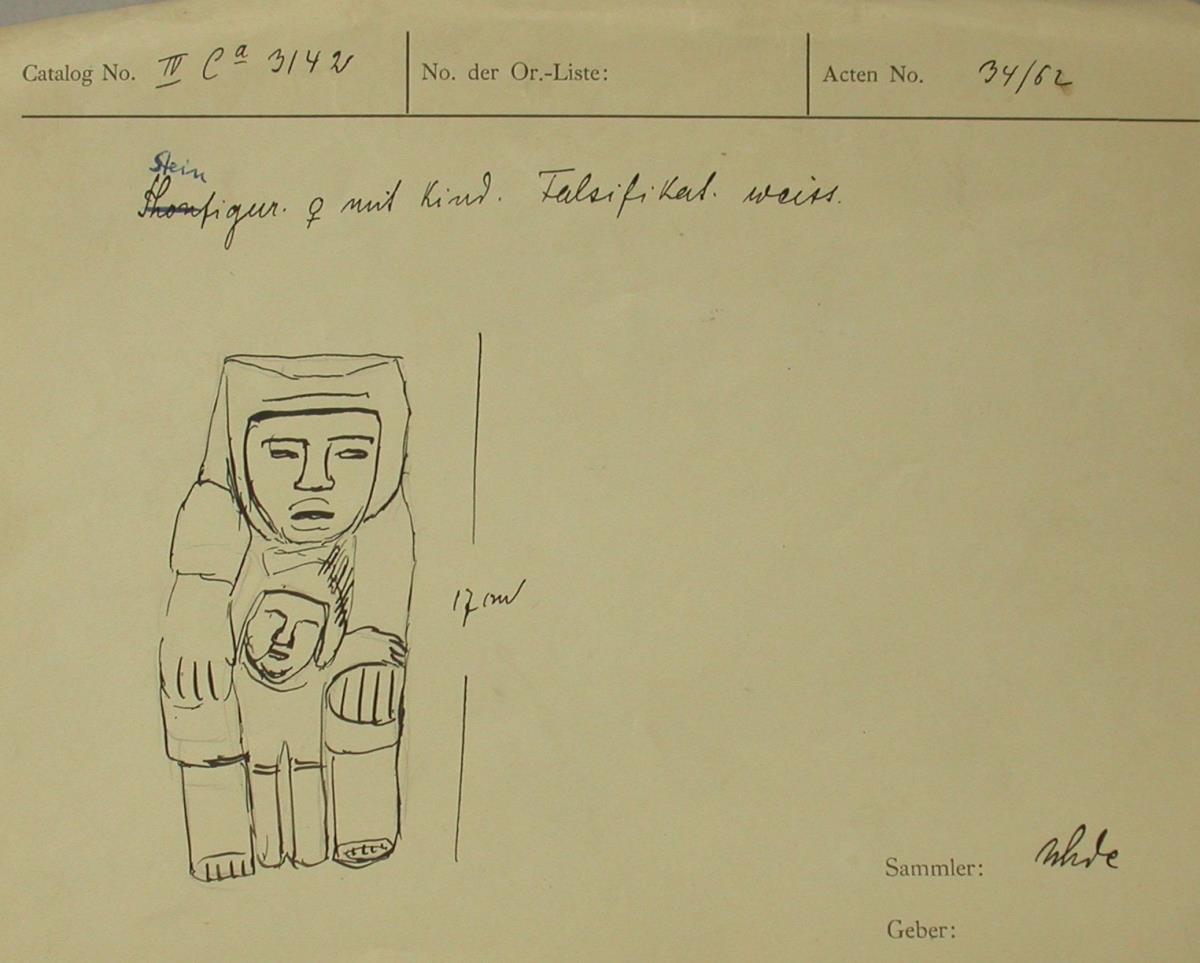 Catalog No. IV Ca 3142
No. der Or.-Liste:
Acten No. 34/62
Stein
Thonfigur. ♀ mit Kind. Falsifikat. weiss.
17 cm
Sammler: Uhde
Geber: